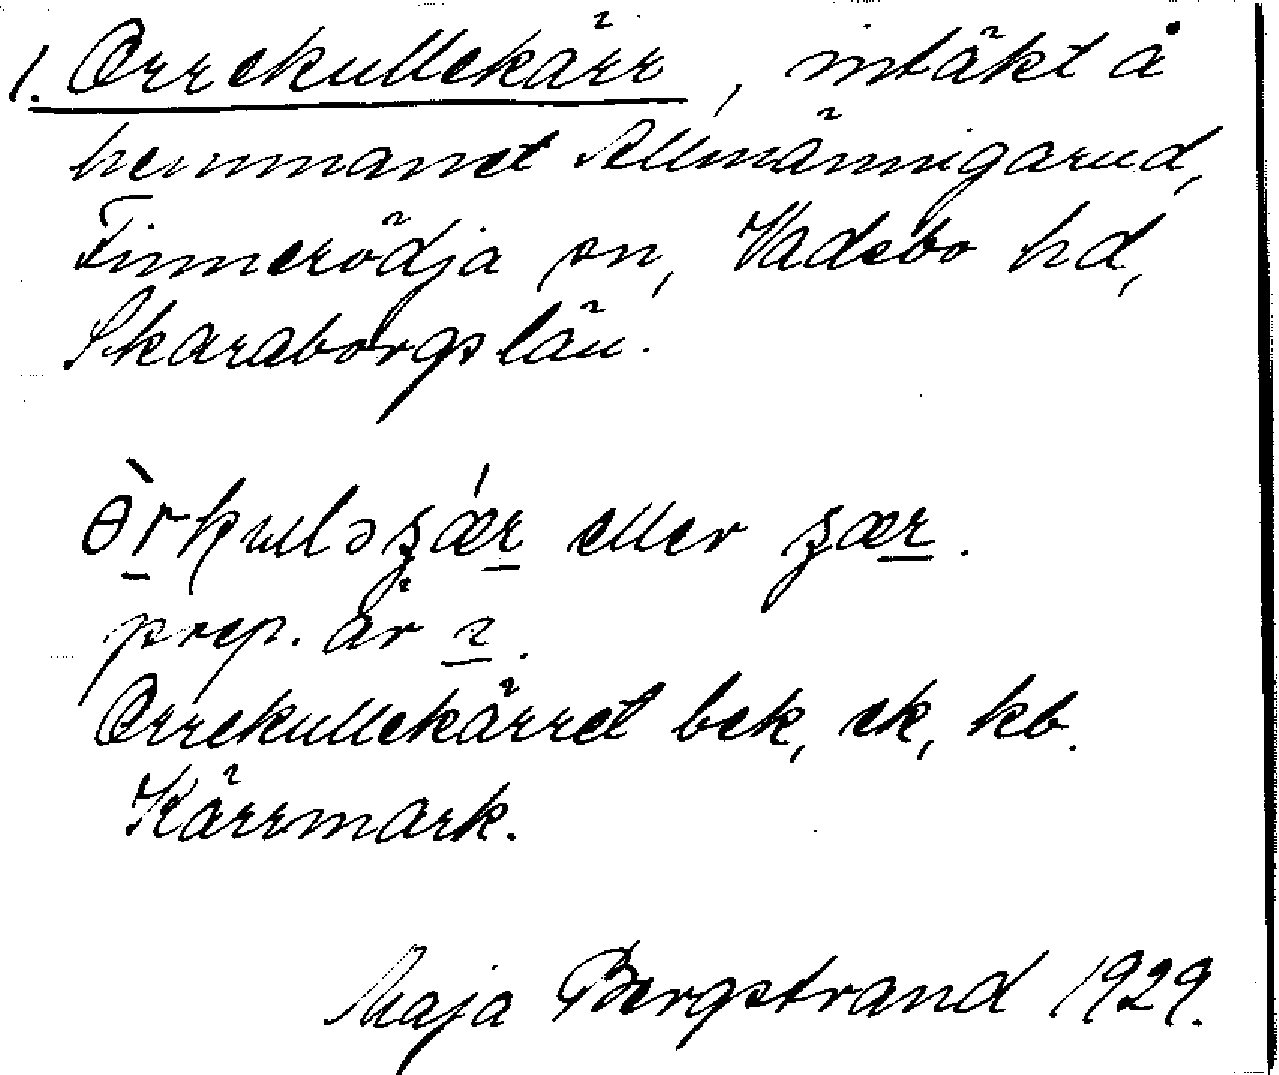 1. Orrekullekärr, intäkt å
hemmanet Allmänningarud,
Finnerödja sn, Vadsbo hd,
Skaraborgs län.
eller
prep. är
Orrekullekärret bek, ek, kb.
Kärrmark.
Maja Bergstrand 1929.